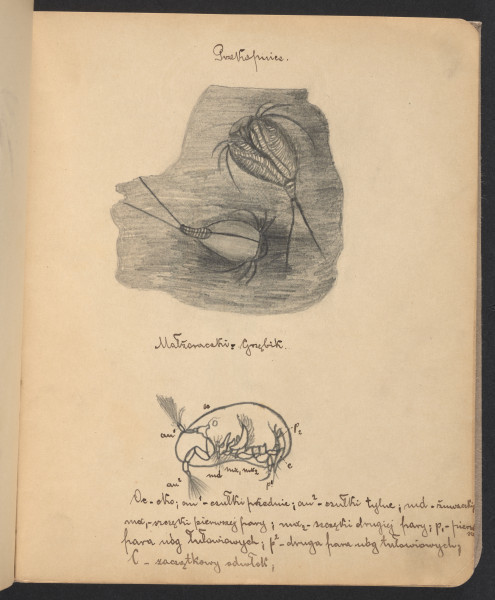 Przekopnice.
Małżoraczki: Grzębik.
oc
an¹
p₂
an²
md
mx₁ mx₂
p¹
c
Oc - oko; an¹ - czułki przednie; an² - czułki tylne; md - żuwaczki
mx₁ - szczęki pierwszej pary; mx₂ - szczęki drugiej pary; p₁ - pierwsza
para nóg tułowiowych; p² - druga para nóg tułowiowych;
C - szczątkowy odwłok;